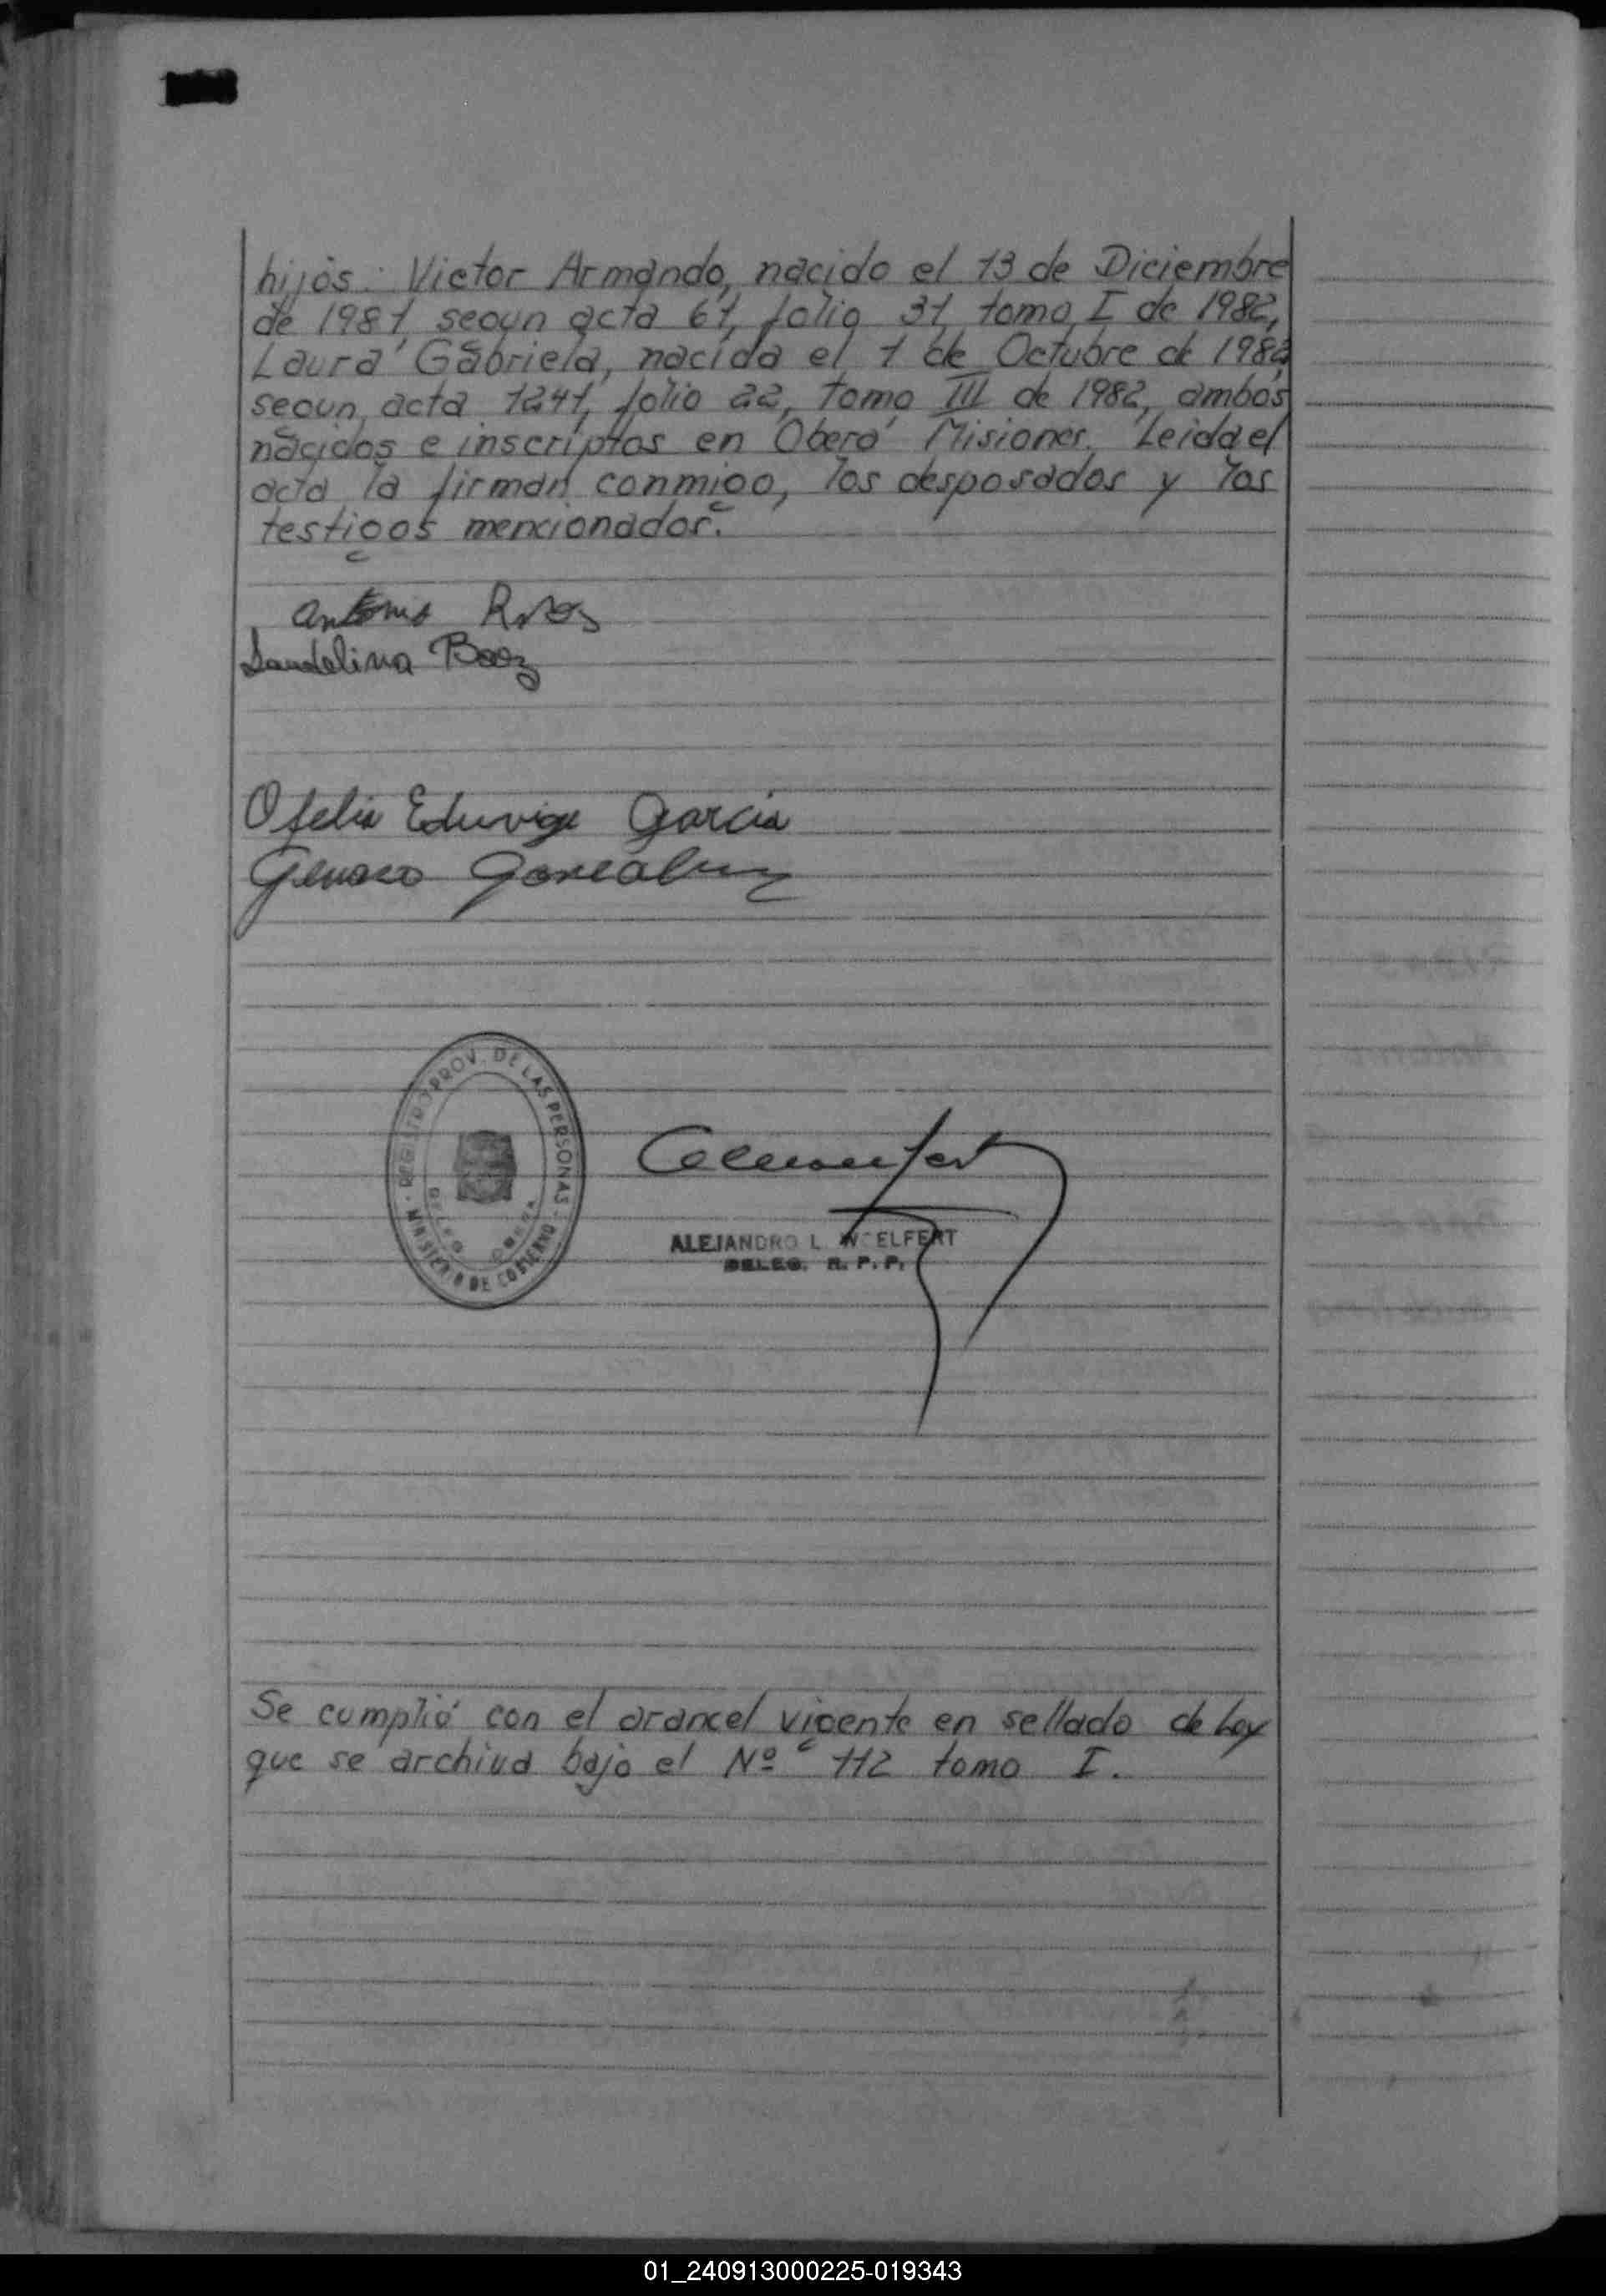 hijos: Victor Armando, nacido el 13 de Diciembre
de 1981, segun acta 61, folio 31, tomo I de 1982,
Laura Gabriela, nacida el 1 de Octubre de 1982
segun acta 1241, folio 22, tomo III de 1982, ambos
nacidos e inscriptos en Oberá Misiones. Leida el
acta la firman conmigo, los desposados y los
testigos mencionados.
Antonio Rios
Landelina Baez
Ofelia Eduvige Garcia
Genaro Gonzalez
REGISTRO PROV. DE LAS PERSONAS
MINISTERIO DE GOBIERNO
ALEJANDRO L. WOELFERT
DELEG. R. P. P.
Se cumplió con el arancel vigente en sellado de Ley
que se archiva bajo el Nº 112 tomo I.
01_240913000225-019343